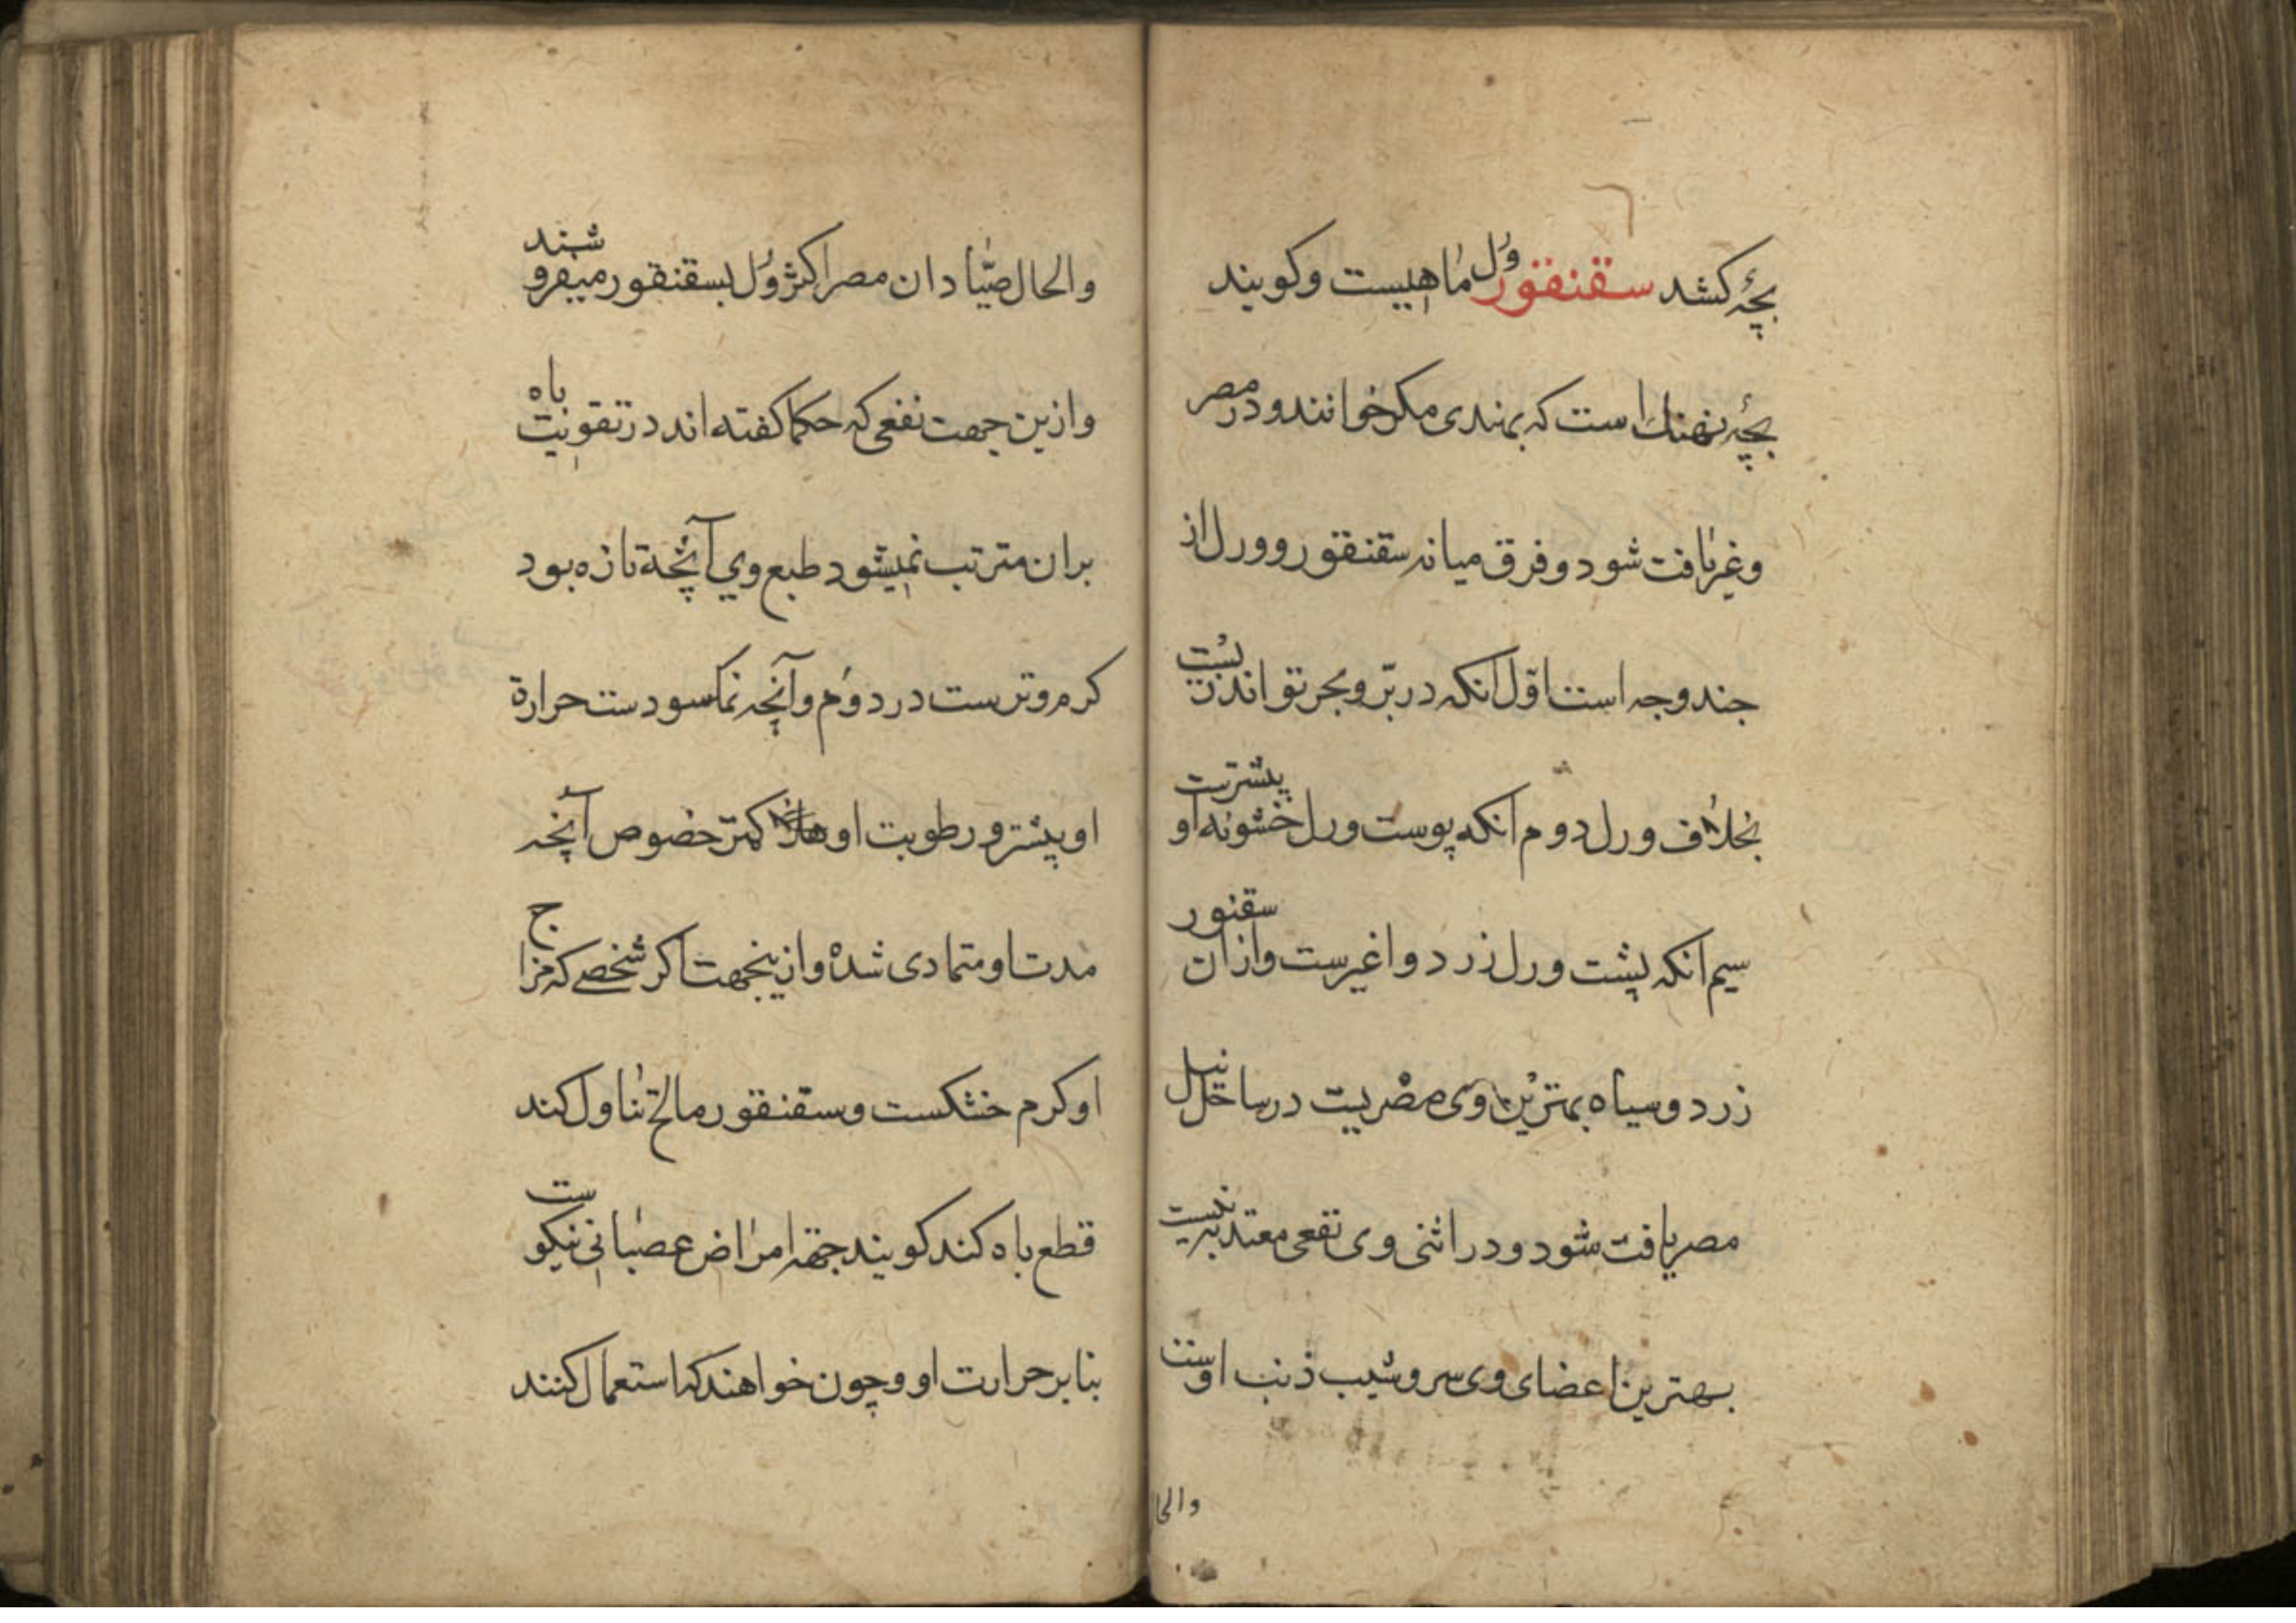 بچهٔ کشد سقنقور وَرَل ماهیست و کویند
بچهٔ نهنک است که بهندی مکر خوانند و در مصر
و غیر یافت شود و فرق میانه سقنقور و ورل از
چند وجه است اوّل انکه در برّ و بحر تواند زیست
بخلاف ورل دوم انکه پوست ورل خشونه او بیشترست
سیم انکه پشت ورل زرد و اغبرست و از ان سقنور
زرد و سیاه بهترین وی مصریست در ساحل نیل
مصر یافت شود و در انثی وی نفعی معتد به نیست
بهترین اعضای وی سر و شیب ذنب اوست
والحا
والحال صیّادان مصر اکثر وَرَل بسقنقور میفروشند
و ازین جهت نفعی که حکما کفته اند در تقویت باه
بران مترتب نمیشود طبع وی آنچه تازه بود
کرم و ترست در دوُم و آنچه نمکسودست حرارة
او بیشتر و رطوبت او کمتر خصوص آنچه
مدت او متمادی شده و ازینجهت اکر شخصے که مزاج
او کرم خشکست و سقنقور مالح تناول کند
قطع باه کند کویند جهة امراض عصبانی نیکوست
بنابر حرارت او و چون خواهند که استعمال کنند